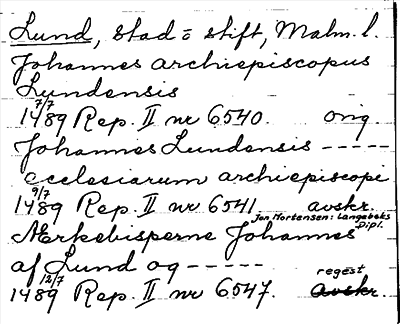 Lund, stad o stift, Malm. l.
Johannes archiepiscopus
Lundensis
7/7
1489 Rep. II nr 6540. orig
Johannes Lundensis -----
ecclesiarum archiepiscopi
9/7
1489 Rep. II nr 6541. avskr.
Jan Mortensen: Langebeks Dipl.
Ærkebisperne Johannes
af Lund og -----
12/7 regest
1489 Rep. II nr 6547. avskr.